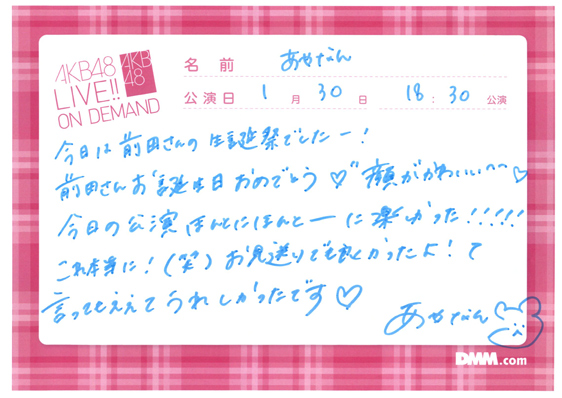 AKB48
LIVE!!
ON DEMAND
AKB
48
名 前 あやなん
公演日 1 月 30 日 18 : 30 公演
今日は前田さんの生誕祭でしたー!
前田さんお誕生日おめでとう♡ 顔がかわいい〜〜♡
今日の公演ほんとにほんとーに楽しかった!!!!!
これ本当に!(笑)お見送りでも良くかったよ!て
言ってもらえてうれしかったです♡
あやなん
DMM.com